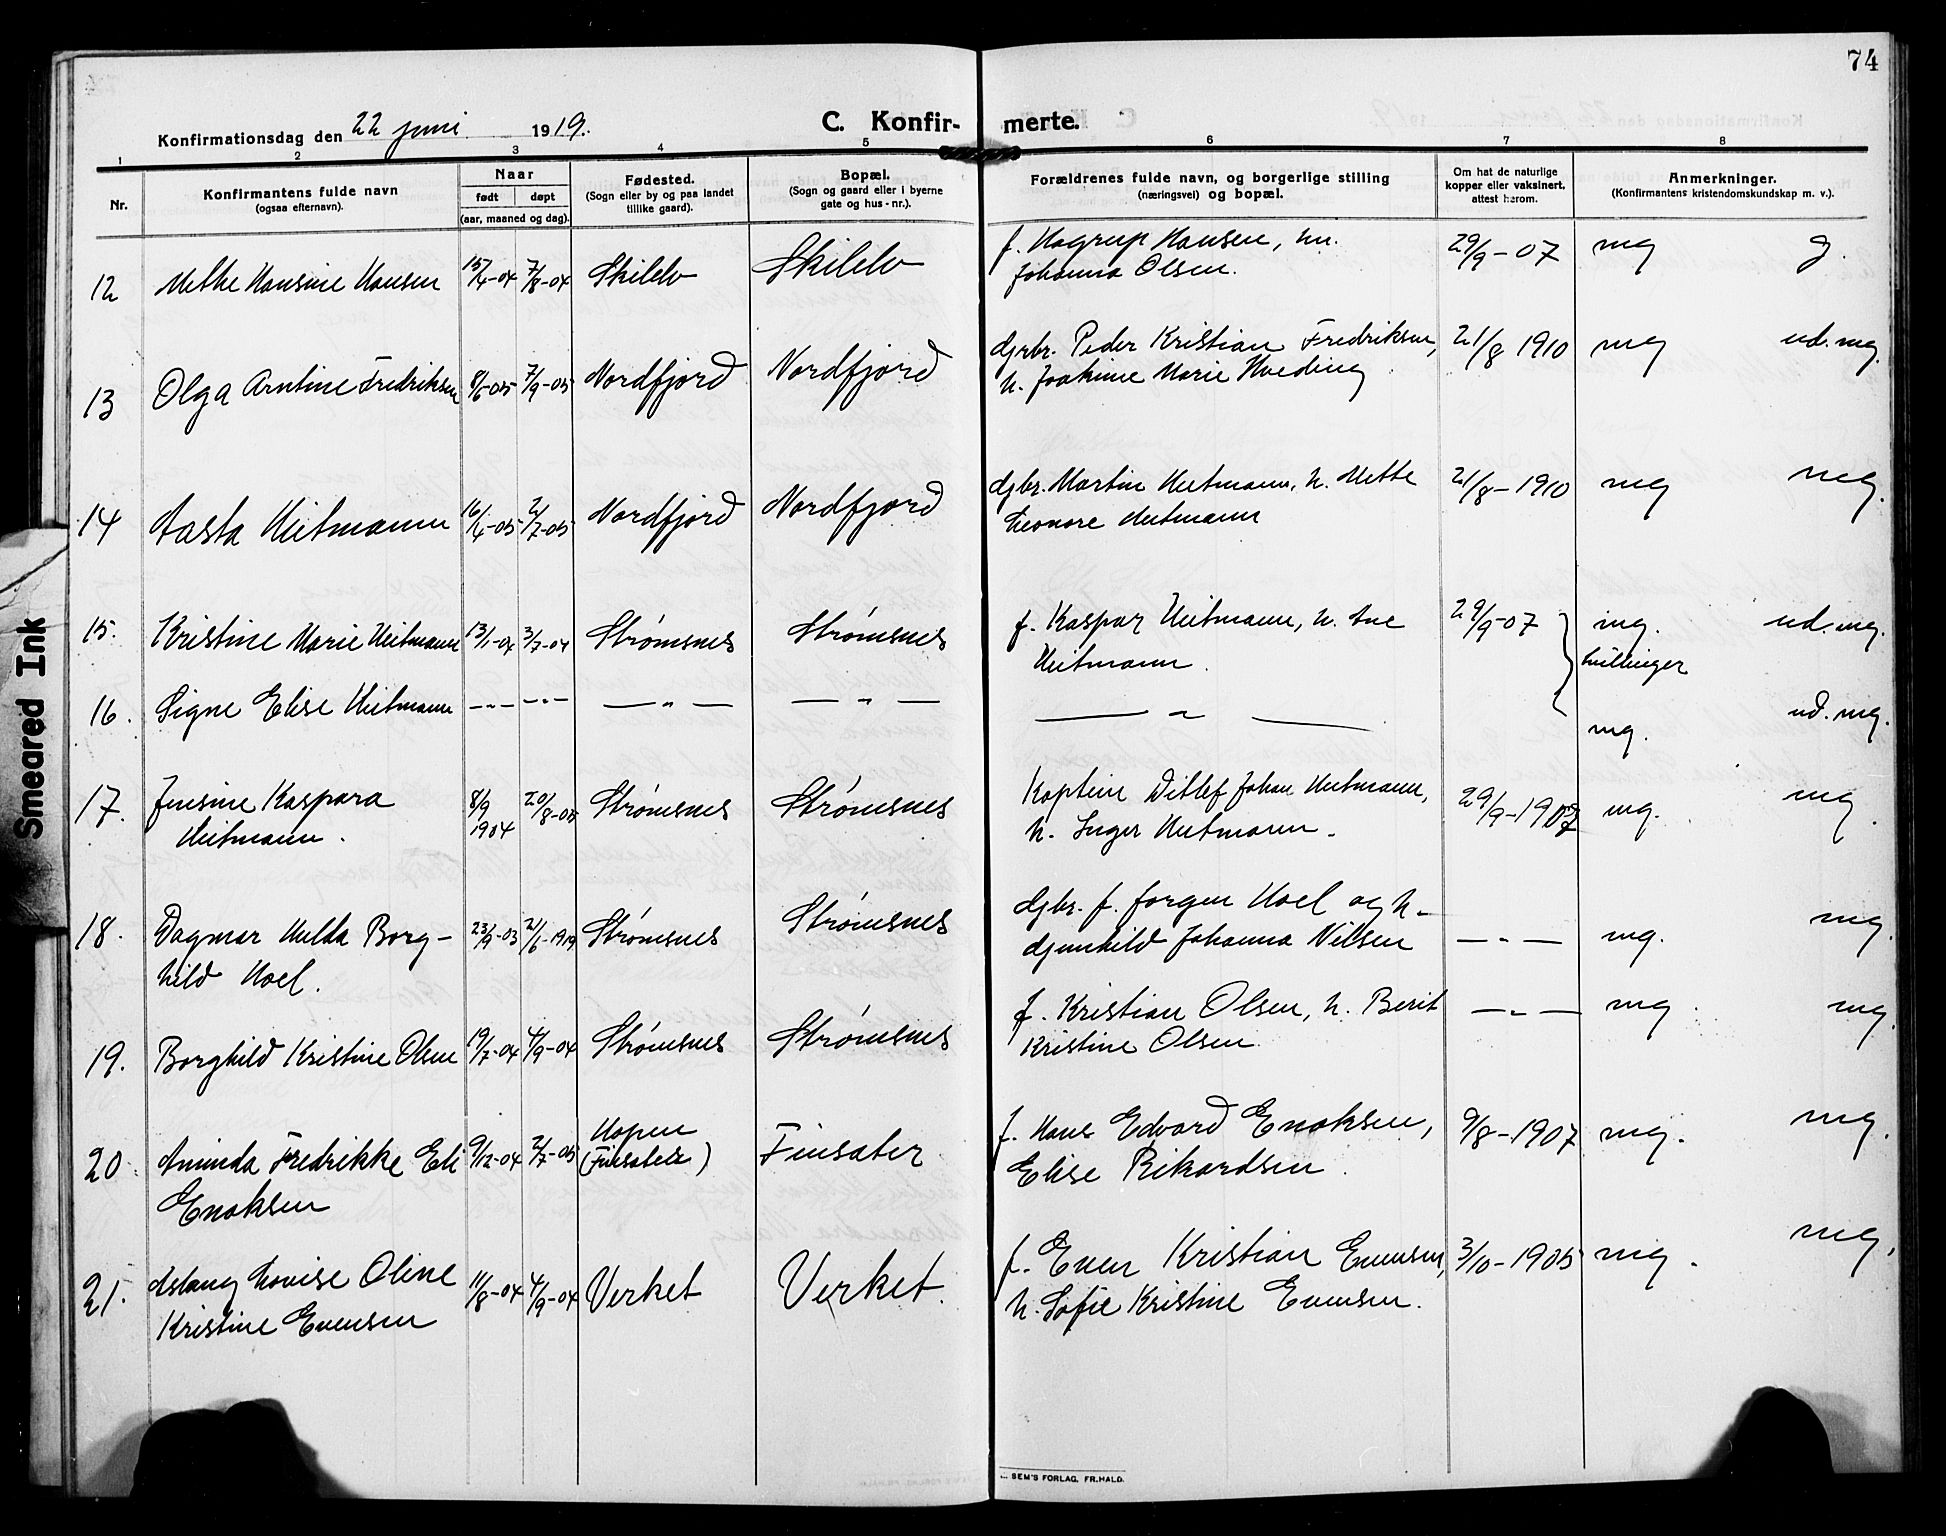 74
Konfirmationsdag den 22 juni 1919.
C. Konfir- merte.
1 2 3 4 5 6 7 8
Nr.
Konfirmantens fulde navn
(ogsaa efternavn).
Naar
født døpt
(aar, maaned og dag).
Fødested.
(Sogn eller by og paa landet
tillike gaard).
Bopæl.
(Sogn og gaard eller i byerne
gate og hus-nr.).
Forældrenes fulde navn, og borgerlige stilling
(næringsvei) og bopæl.
Om hat de naturlige
kopper eller vaksinert,
attest herom.
Anmerkninger.
(Konfirmantens kristendomskundskap m. v.).
12 Methe Hansine Hansen 15/4-04 7/8-04 Skilelv Skilelv f. Hagrup Hansen, hu. 29/9-07 mg g.
Johanna Olsen.
13 Olga Arntine Fredriksen 8/6-05 7/9-05 Nordfjord Nordfjord gbr. Peder Kristian Fredriksen, 21/8 1910 mg ud. mg.
h. Joakime Marie Hveding
14 Aasta Heitmann 16/4-05 2/7-05 Nordfjord Nordfjord gbr. Martin Heitmann, h. Mette 21/8-1910 mg mg.
Leonore Heitmann
15. Kristine Marie Heitmann 13/1-04 3/7-04 Strømsnes Strømsnes f. Kaspar Heitmann, h. Ane 29/9-07 mg. ud. mg.
Heitmann. tvillinger
16. Signe Elise Heitmann -"- -"- — " — — " — — " — mg. ud. mg.
17. Jensine Kaspara 8/9 1904 20/8-05 Strømsnes Strømsnes Kaptein Ditlef Johan Heitmann, 29/9-1907 mg. mg.
Heitmann. h. Inger Heitmann.
18. Dagmar Hulda Borg- 23/9-03 2/6-1919 Strømsnes Strømsnes gbr. f. Jørgen Hoel og h. — " — mg. mg.
hild Hoel. Johanna Nilsen
19. Borghild Kristine Olsen 19/7-04 4/9-04 Strømsnes Strømsnes f. Kristian Olsen, h. Berit — " — mg. mg.
Kristine Olsen.
20 Aminda Fredrikke Eli 9/12-04 2/7-05 Hopen Finsæter f. Hans Edvard Enoksen, 9/8-1907 mg. mg.
Enoksen (Finsæter) Elise Rikardsen.
21. Aslaug Lovise Oline 11/8-04 4/9-04 Verket Verket. f. Even Kristian Evensen, 3/10-1905 mg. mg.
Kristine Evensen h. Sofie Kristine Evensen.
SEM'S FORLAG, FR.HALD.
Smeared Ink